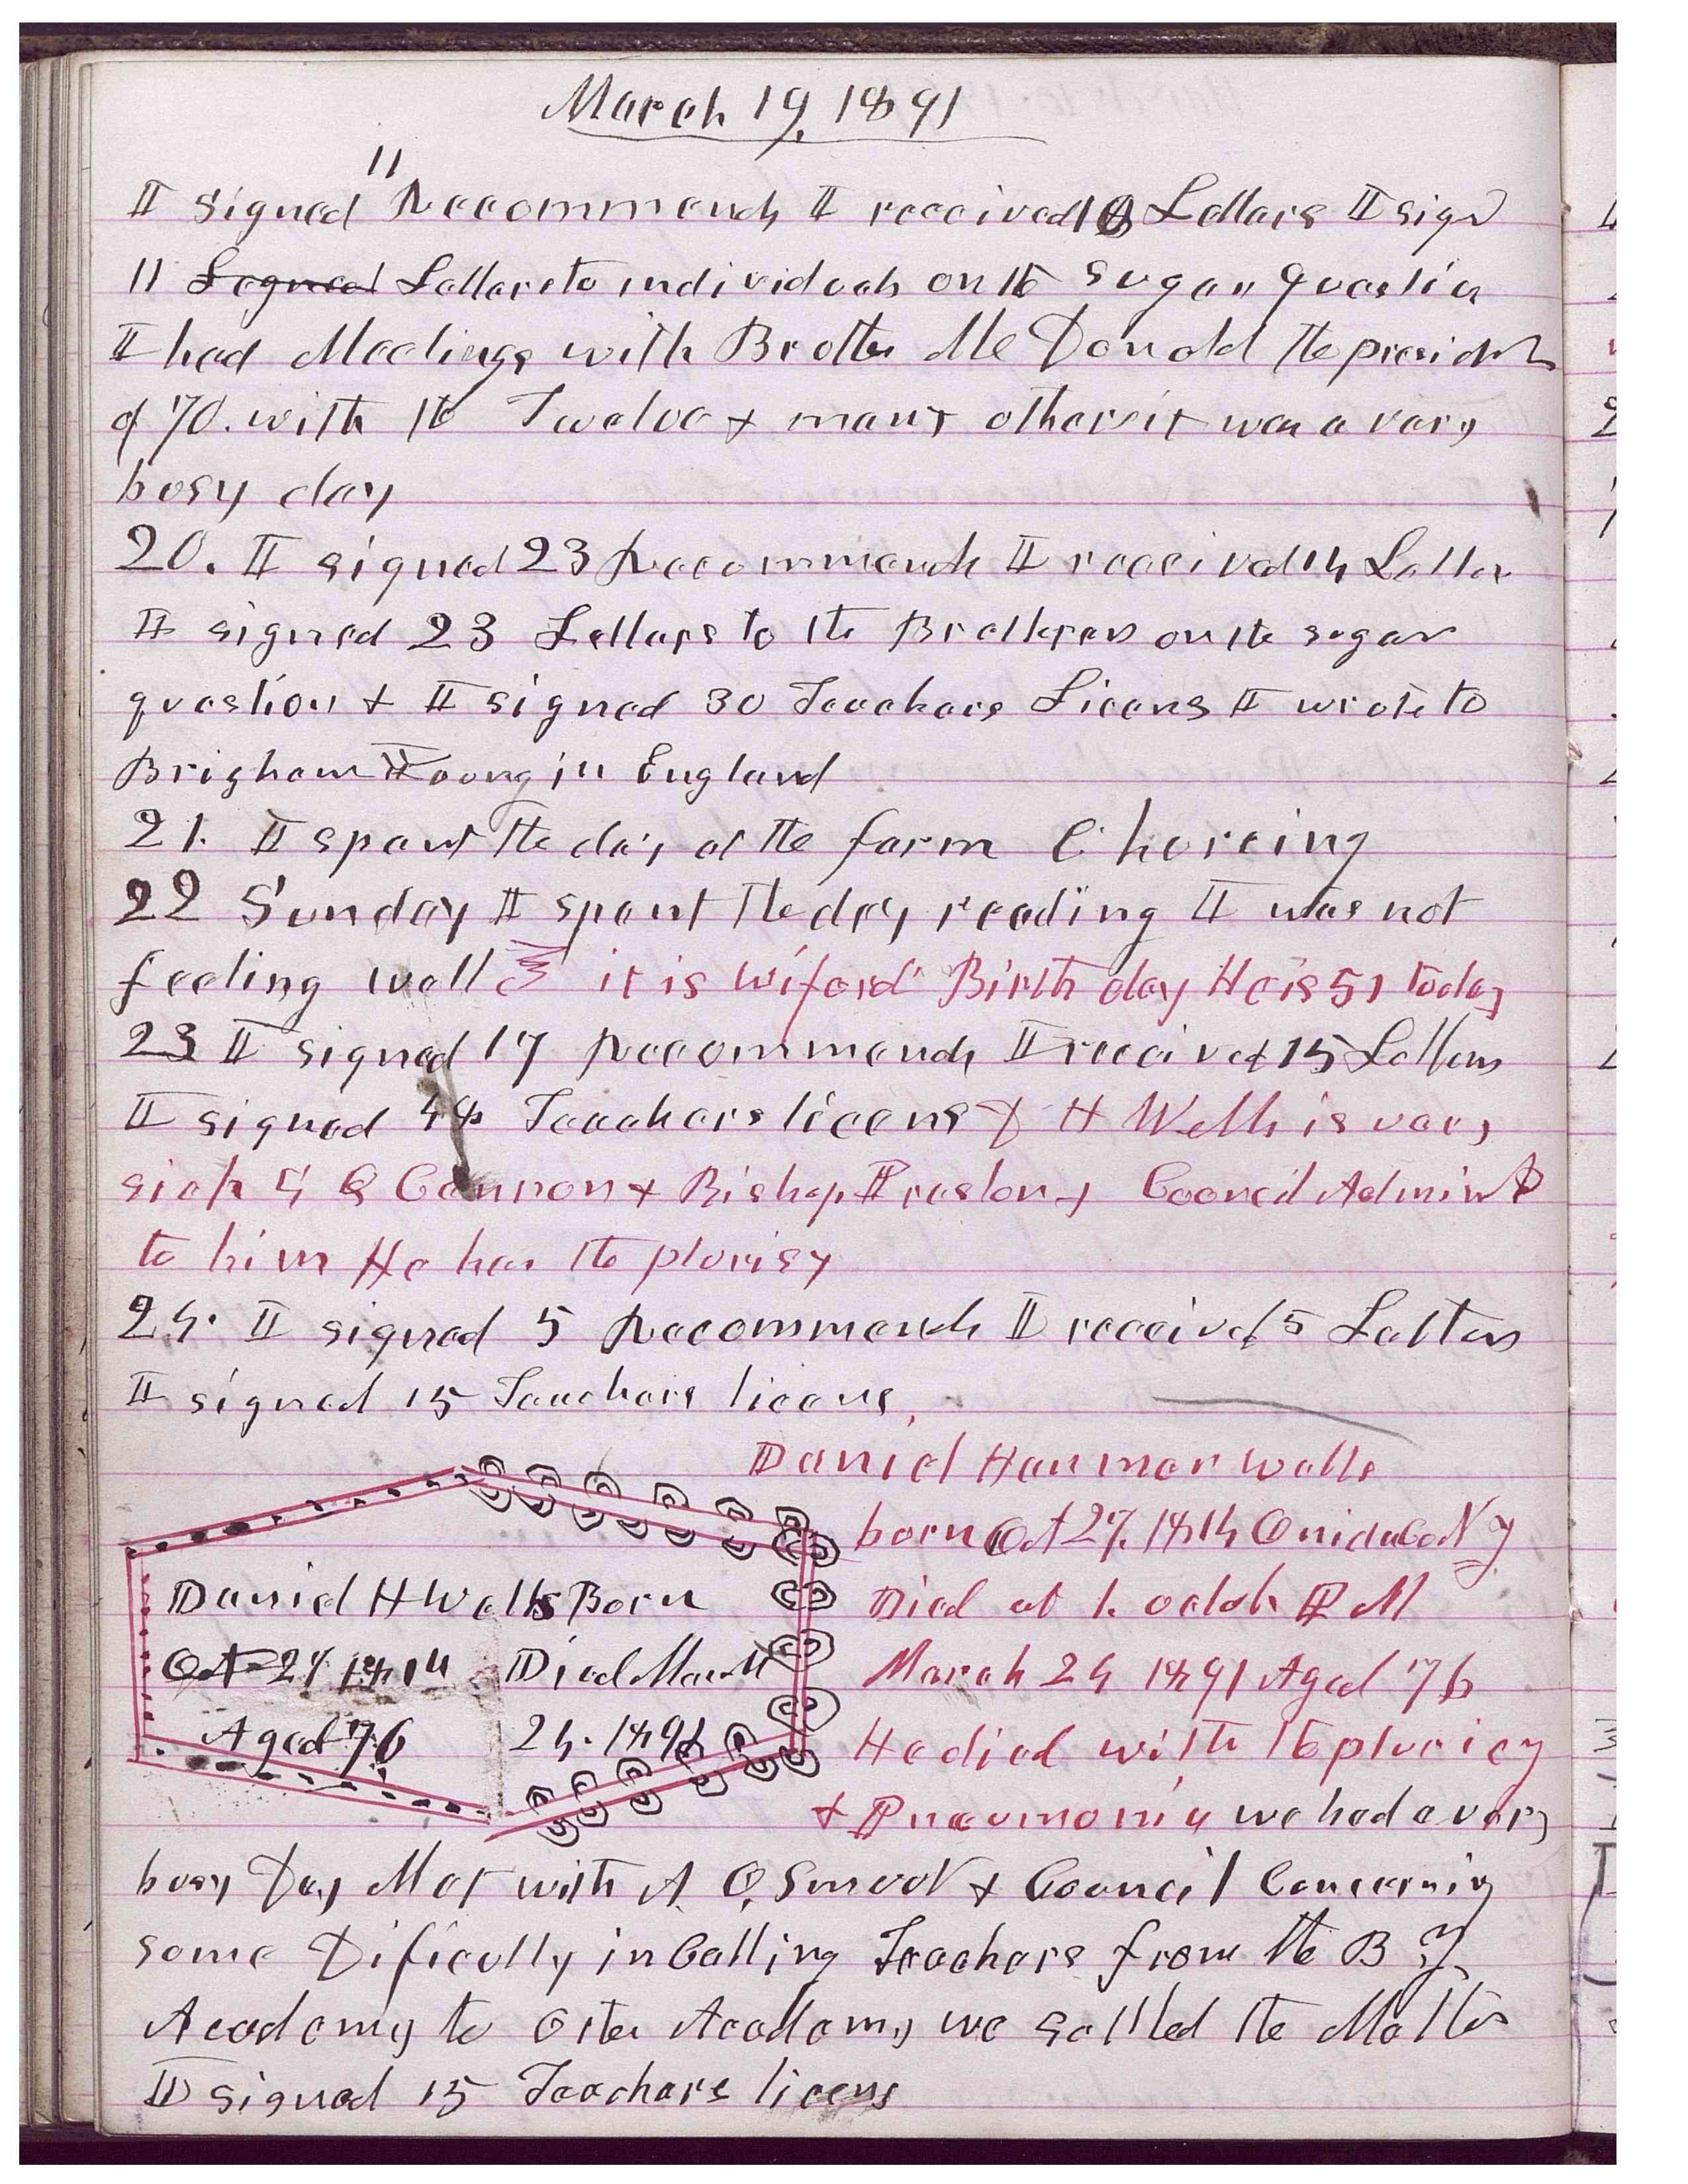 March 19, 1891
11
I signed Recommends I received 18 Letters I sign
11 Segned Letters to individuals on the Sugar question
I had Meetings with Brother McDonald the president
of 70. with the Twelve & many others it was a vary
busy day
20. I signed 23 Recommends I received 14 Letter
I signed 23 Letters to the Brethren on the sugar
question & I signed 30 Teachers Licens I wrote to
Brigham Young in England
21. I spent the day at the farm Choreing
22 Sunday I spent the day reading I was not
feeling well it is Wilford Birth day He is 51 today
23 I signed 17 Recommends I received 15 Letters
I signed 48 Teachers licens D H Wells is vary
sick G Q Cannon & Bishop Preston & Council Admin
to him He has the plurisy
24. I signed 5 Recommends I received 5 Letters
I signed 15 Teachers licens,
Daniel Hanmer Wells
born Oct 27. 1814 Onida Co N Y
Died at 1. oclok P M
March 24 1891 Aged 76
He died with the pluricy
& Pneumonia we had a vary
Daniel H Wells Born
Oct 27 1814 Died March
Aged 76 24. 1891
busy Day Met with A. O. Smoot & Council Concerning
some Dificulty in Calling Teachers from the B Y.
Academy to other Academy we settled the Matter
I signed 15 Teachers licens